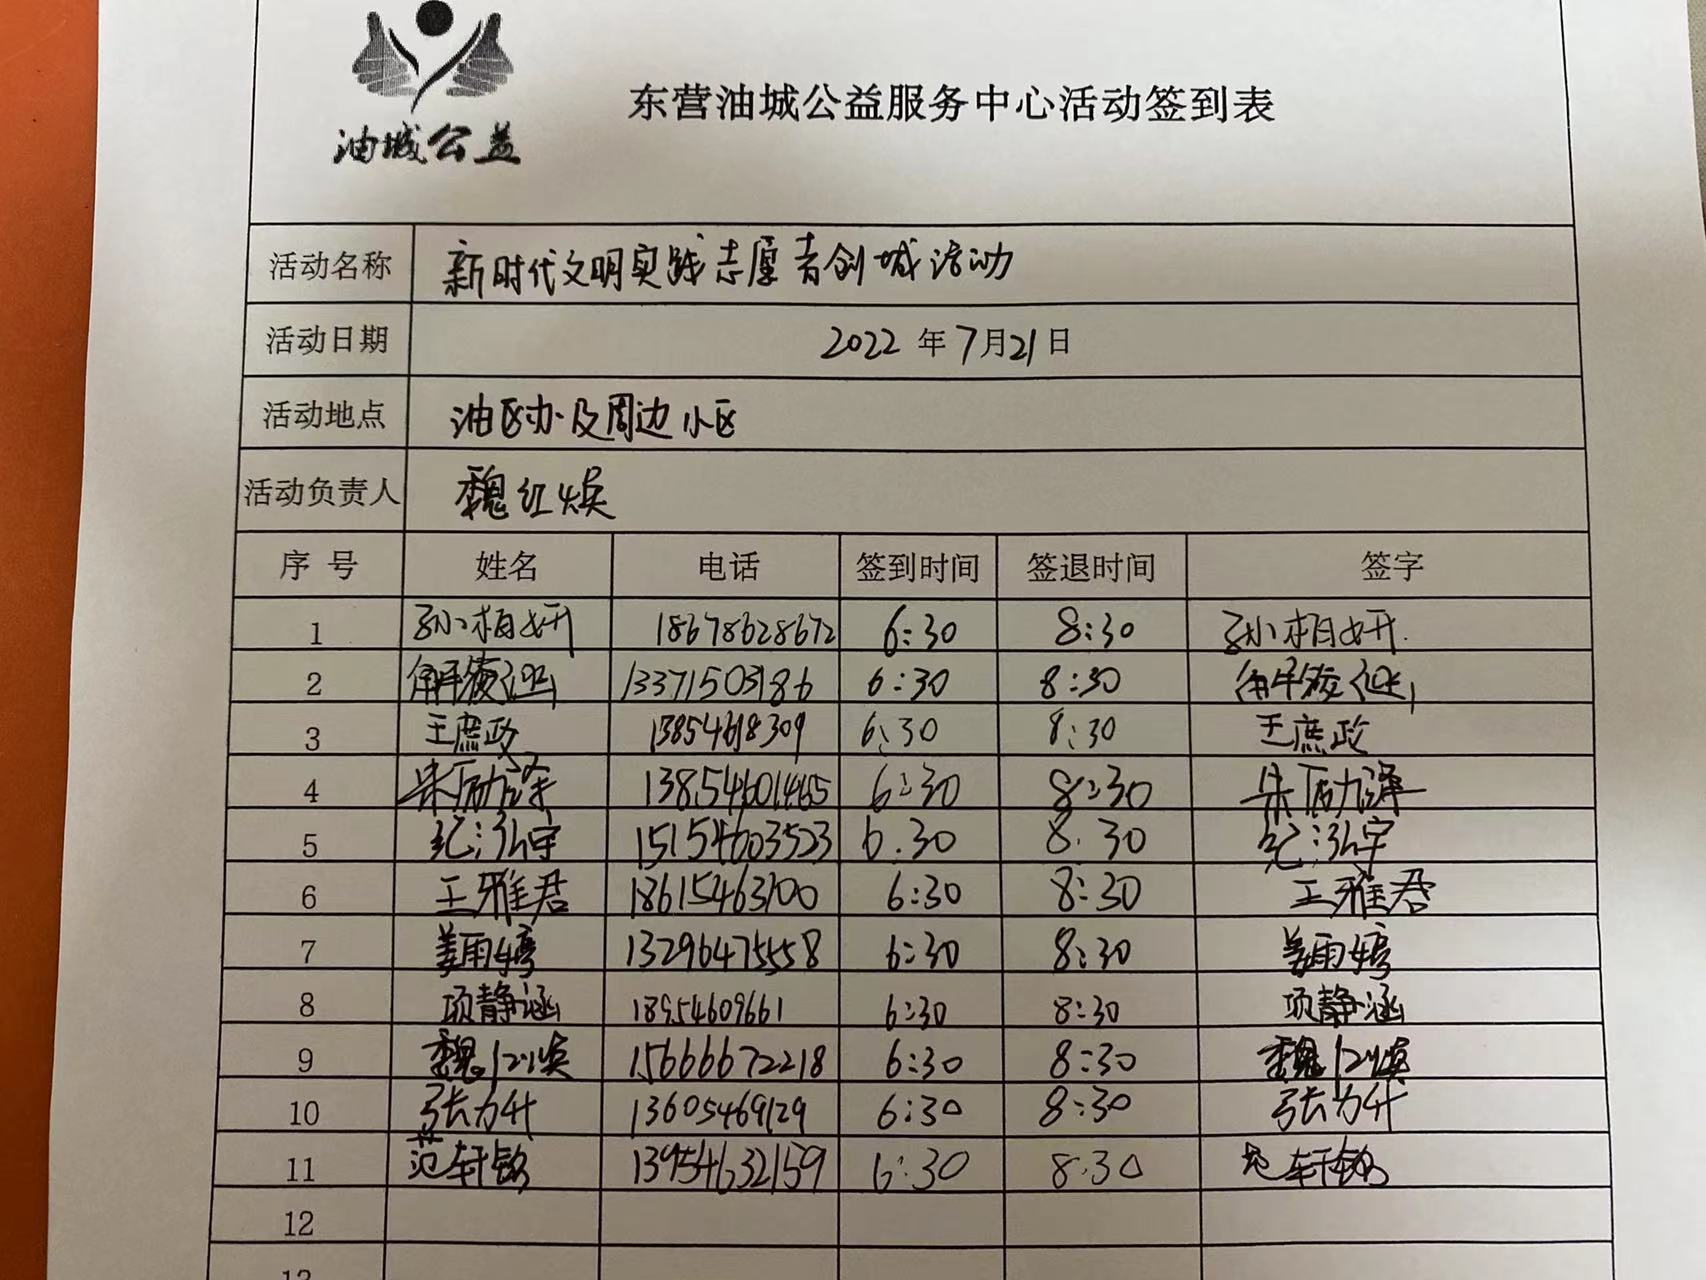 油城公益
东营油城公益服务中心活动签到表
活动名称 新时代文明实践志愿者创城活动
活动日期 2022 年 7月21日
活动地点 油区办及周边小区
活动负责人 魏红焕
序 号 姓名 电话 签到时间 签退时间 签字
1 孙柏妍 18678628672 6:30 8:30 孙柏妍
2 13371503186 6:30 8:30
3 王庶政 13854618309 6:30 8:30 王庶政
4 13854601465 6:30 8:30
5 纪泓宇 15154603523 6:30 8:30 纪泓宇
6 王雅君 18615463100 6:30 8:30 王雅君
7 姜雨婷 13296475558 6:30 8:30 姜雨婷
8 项静涵 18954609661 6:30 8:30 项静涵
9 15666672218 6:30 8:30
10 张力升 13605469129 6:30 8:30 张力升
11 范轩铭 13954632159 6:30 8:30 范轩铭
12